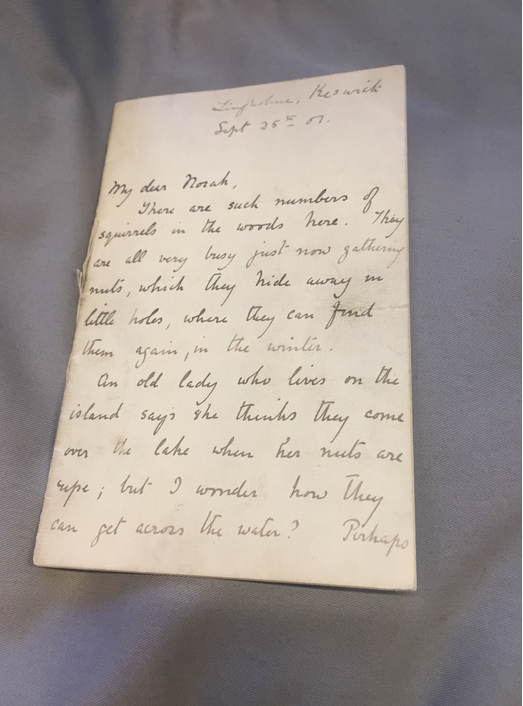 Lingholm, Keswick
Sept 25th 01.
My dear Norah,
There are such numbers of
squirrels in the woods here. They
are all very busy just now gathering
nuts, which they hide away in
little holes, where they can find
them again, in the winter.
An old lady who lives on the
island says she thinks they come
over the lake when her nuts are
ripe; but I wonder how they
can get across the water? Perhaps